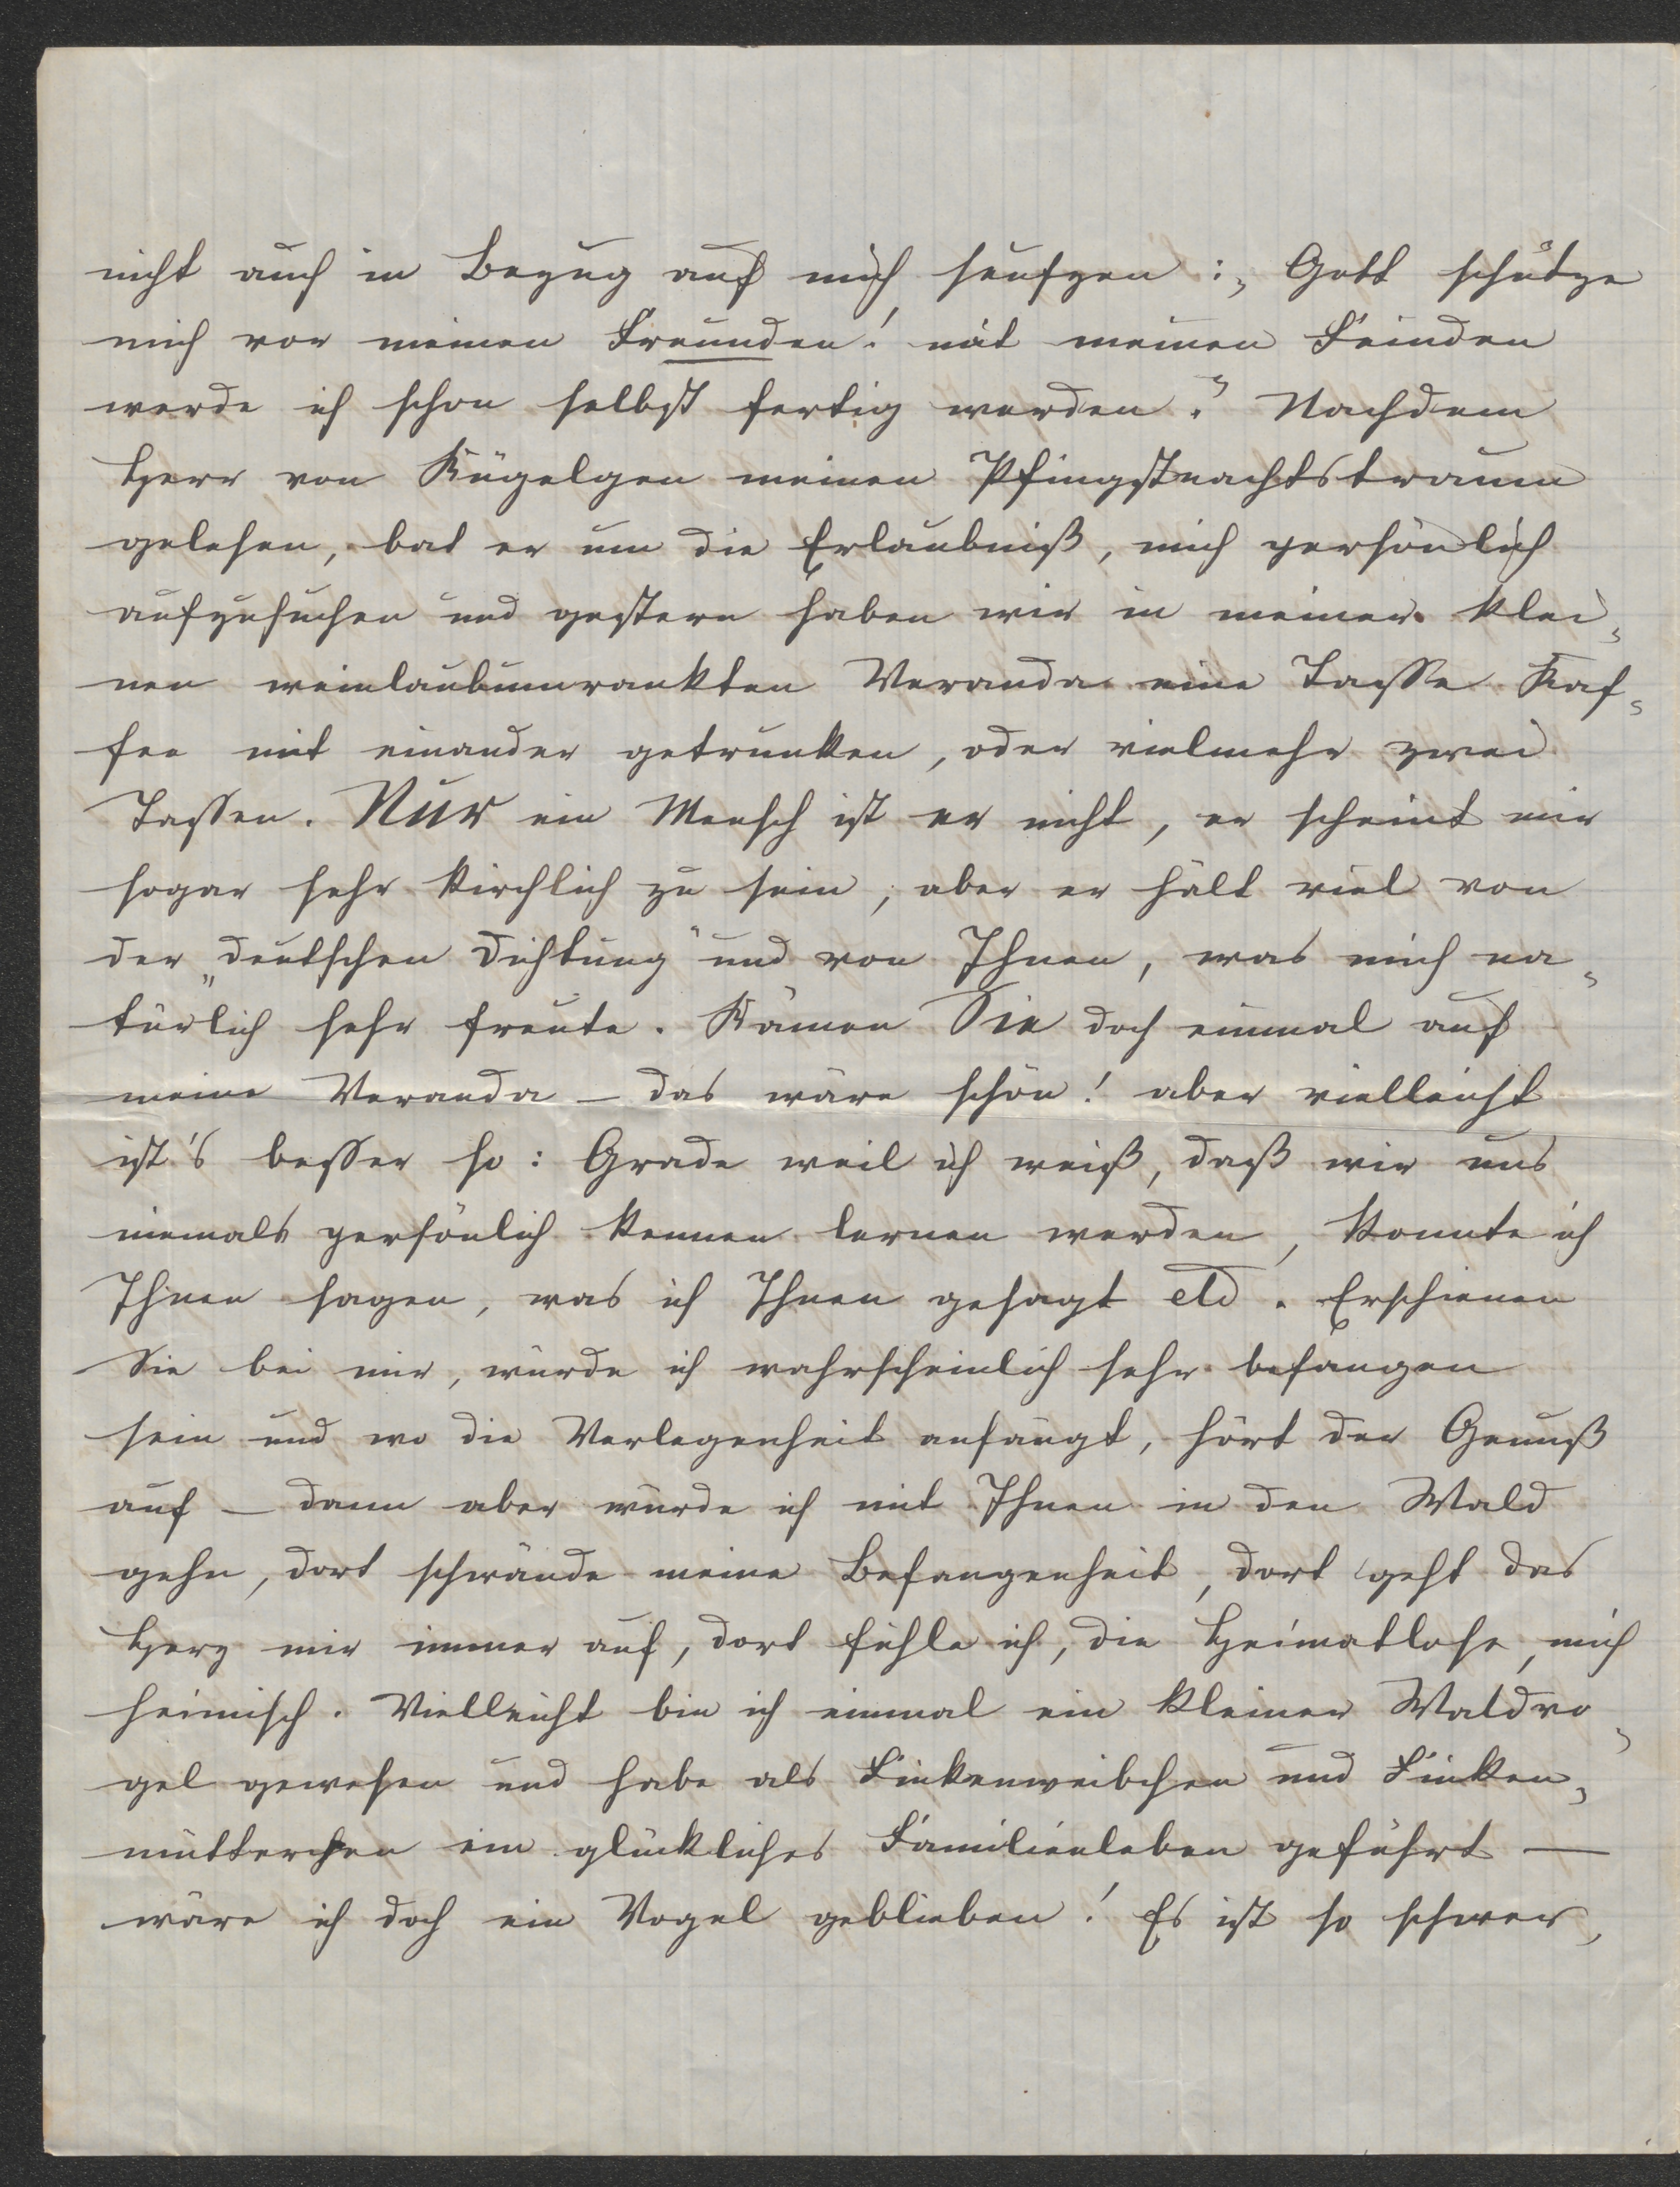 nicht auch in Bezug auf mich seufzen: „Gott schütze
mich vor meinen Freunden! mit meinen Feinden
werde ich schon selbst fertig werden." Nachdem
Herr von Kügelgen meinen Pfingstnachtstraum
gelesen, bat er um die Erlaubniß, mich persönlich
aufzusuchen und gestern haben wir in meiner klei-
nen weinlaubumrankten Veranda eine Tasse Kaf-
fee mit einander getrunken, oder vielmehr zwei
Tassen. Nur ein Mensch ist er nicht, er scheint mir
sogar sehr kirchlich zu sein, aber er hält viel von
der „deutschen Dichtung" und von Ihnen, was mich na-
türlich sehr freute. Kämen Sie doch einmal auf
meine Veranda – das wäre schön! aber vielleicht
ist's besser so: Grade weil ich weiß, daß wir uns
niemals persönlich kennen lernen werden, konnte ich
Ihnen sagen, was ich Ihnen gesagt etc. Erschienen
Sie bei mir, würde ich wahrscheinlich sehr befangen
sein und wo die Verlegenheit anfängt, hört der Genuß
auf – dann aber würde ich mit Ihnen in den Wald
gehn, dort schwände meine Befangenheit, dort geht das
Herz mir immer auf, dort fühle ich, die Heimatlose, mich
heimisch. Vielleicht bin ich einmal ein kleiner Waldvo-
gel gewesen und habe als Finkenweibchen und Finken-
mütterchen ein glückliches Familienleben geführt –
wäre ich doch ein Vogel geblieben! Es ist so schwer,